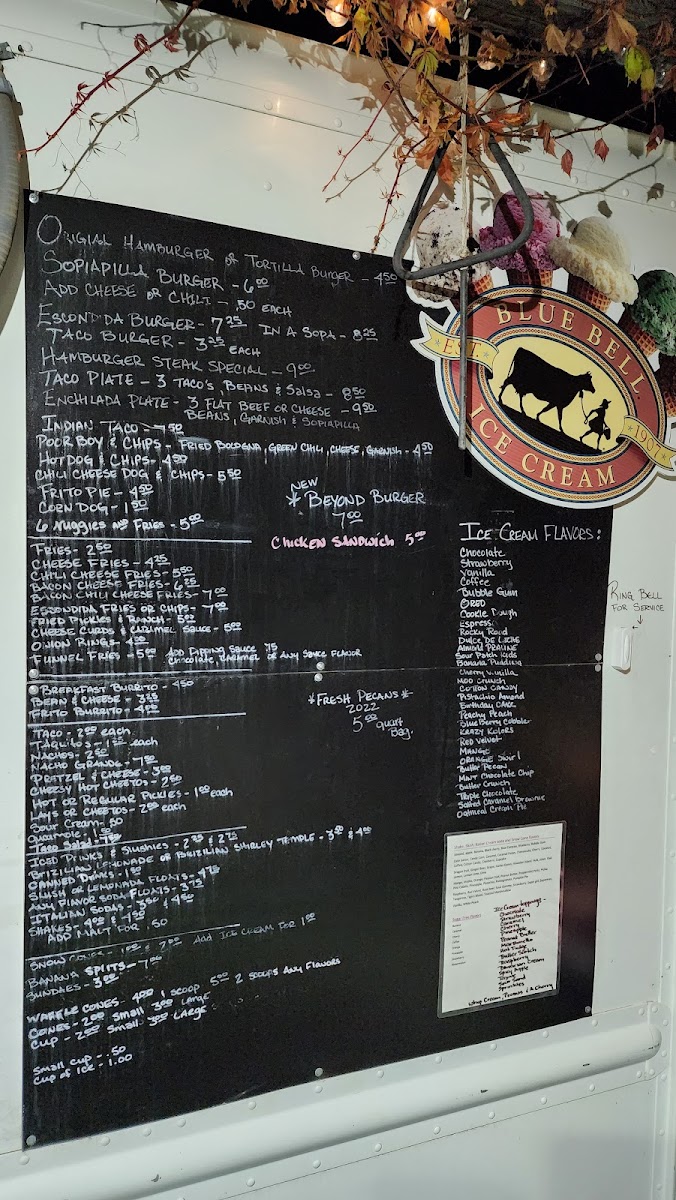 ORIGIAL HAMBURGER OR TORTILLA BURGER - 4.50
SOPIAPILLA BURGER - 6.00
ADD CHEESE OR CHILI - .50 EACH
ESCONDIDA BURGER - 7.25 IN A SOPA - 8.25
TACO BURGER - 3.25 EACH
HAMBURGER STEAK SPECIAL - 9.00
TACO PLATE - 3 TACO'S BEANS & SALSA - 8.50
ENCHILADA PLATE - 3 FLAT BEEF OR CHEESE - 9.50
BEANS, GARNISH & SOPIAPILLA
INDIAN TACO - 7.50
POOR BOY & CHIPS - FRIED BOLOGNA, GREEN CHILI, CHEESE, GARNISH - 4.50
HOT DOG & CHIPS - 4.50
CHILI CHEESE DOG & CHIPS - 5.50
FRITO PIE - 4.50
CORN DOG - 1.50
6 Nuggies AND FRIES - 5.00
NEW
BEYOND BURGER
7.00
CHICKEN SANDWICH 5.00
FRIES - 2.50
CHEESE FRIES - 4.25
CHILI CHEESE FRIES - 5.50
BACON CHEESE FRIES - 6.25
BACON CHILI CHEESE FRIES - 7.00
ESCONDIDA FRIES OR CHIPS - 7.00
FRIED PICKLES & RANCH - 5.00
CHEESE CURDS & CARAMEL SAUCE - 5.00
ONION RINGS - 4.00
FUNNEL FRIES - 5.00 ADD DIPPING SAUCE .75
CHOCOLATE, CARAMEL OR ANY SAUCE FLAVOR
BREAKFAST BURRITO - 4.50
BEAN & CHEESE - 3.25
FRITO BURRITO - 4.25
*FRESH PECANS*
2022
5.00 QUART
BAG.
TACO - 2.00 each
TAQUITOS - each
NACHOS - 2.50
NACHO GRANDE - 7.50
PRETZEL & CHEESE - 3.00
CHEESY HOT CHEETOS - 2.50
HOT OR REGULAR PICKLES - 1.00 each
LAYS OR CHEETOS - 2.00 each
SOUR CREAM .50
Guacmole - 1.50
Taco Salad - 7.50
ICED DRINKS & SLUSHIES - 2.25 & 2.75
BRIZILIAN LEMONADE OR BRIZILIAN SHIRLEY TEMPLE - 3.00 & 4.00
CANNED DRINKS - 1.50
SLUSH OR LEMONADE FLOATS - 4.75
ANY FLAVOR SODA FLOATS - 3.75
ITALIAN SODAS - 3.50 & 4.50
SHAKES - 4.00 & 4.50
ADD MALT FOR .50
SNOW CONES - 1.00 & 2.00 ADD ICE CREAM FOR 1.00
BANANA SPLITS - 7.00
SUNDAES - 3.00
WAFFLE CONES - 4.00 1 SCOOP 5.00 2 SCOOPS ANY FLAVORS
CONES - 2.00 SMALL 3.00 LARGE
CUP - 2.00 SMALL 3.00 LARGE
SMALL CUP - .50
CUP OF ICE - 1.00
BLUE BELL
EST. 1907
ICE CREAM
RING BELL
FOR SERVICE
ICE CREAM FLAVORS:
Chocolate
Strawberry
Vanilla
Coffee
Bubble Gum
OREO
Cookie Dough
Espresso
Rocky Road
DULCE DE LECHE
Almond PRALINE
Sour Patch Kids
Banana Pudding
Cherry Vanilla
MOO CRUNCH
COTTON CANDY
Pistachio Almond
Birthday CAKE
Peachy Peach
Blueberry Cobbler
KRAZY Kolors
Red Velvet
MANGO
ORANGE Swirl
Butter Pecan
MINT Chocolate Chip
Butter Crunch
Triple Chocolate
Salted Caramel Brownie
Oatmeal Cream Pie
Ice Cream Toppings -
Chocolate
Strawberry
Caramel
Cherry
Pineapple
Peanut Butter
Marshmallow
Hot Fudge
Butter Scotch
Raspberry
Sprinkles
Whip Cream, Peanuts & A Cherry